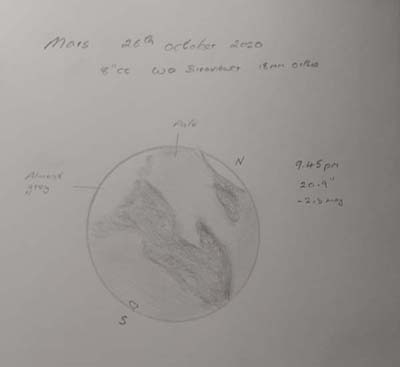 Mars 26th October 2020
8"cc WO Binoviewer 18mm Ortho
Pale
N
Almost
grey
9.45pm
20.9"
-2.3 mag
S